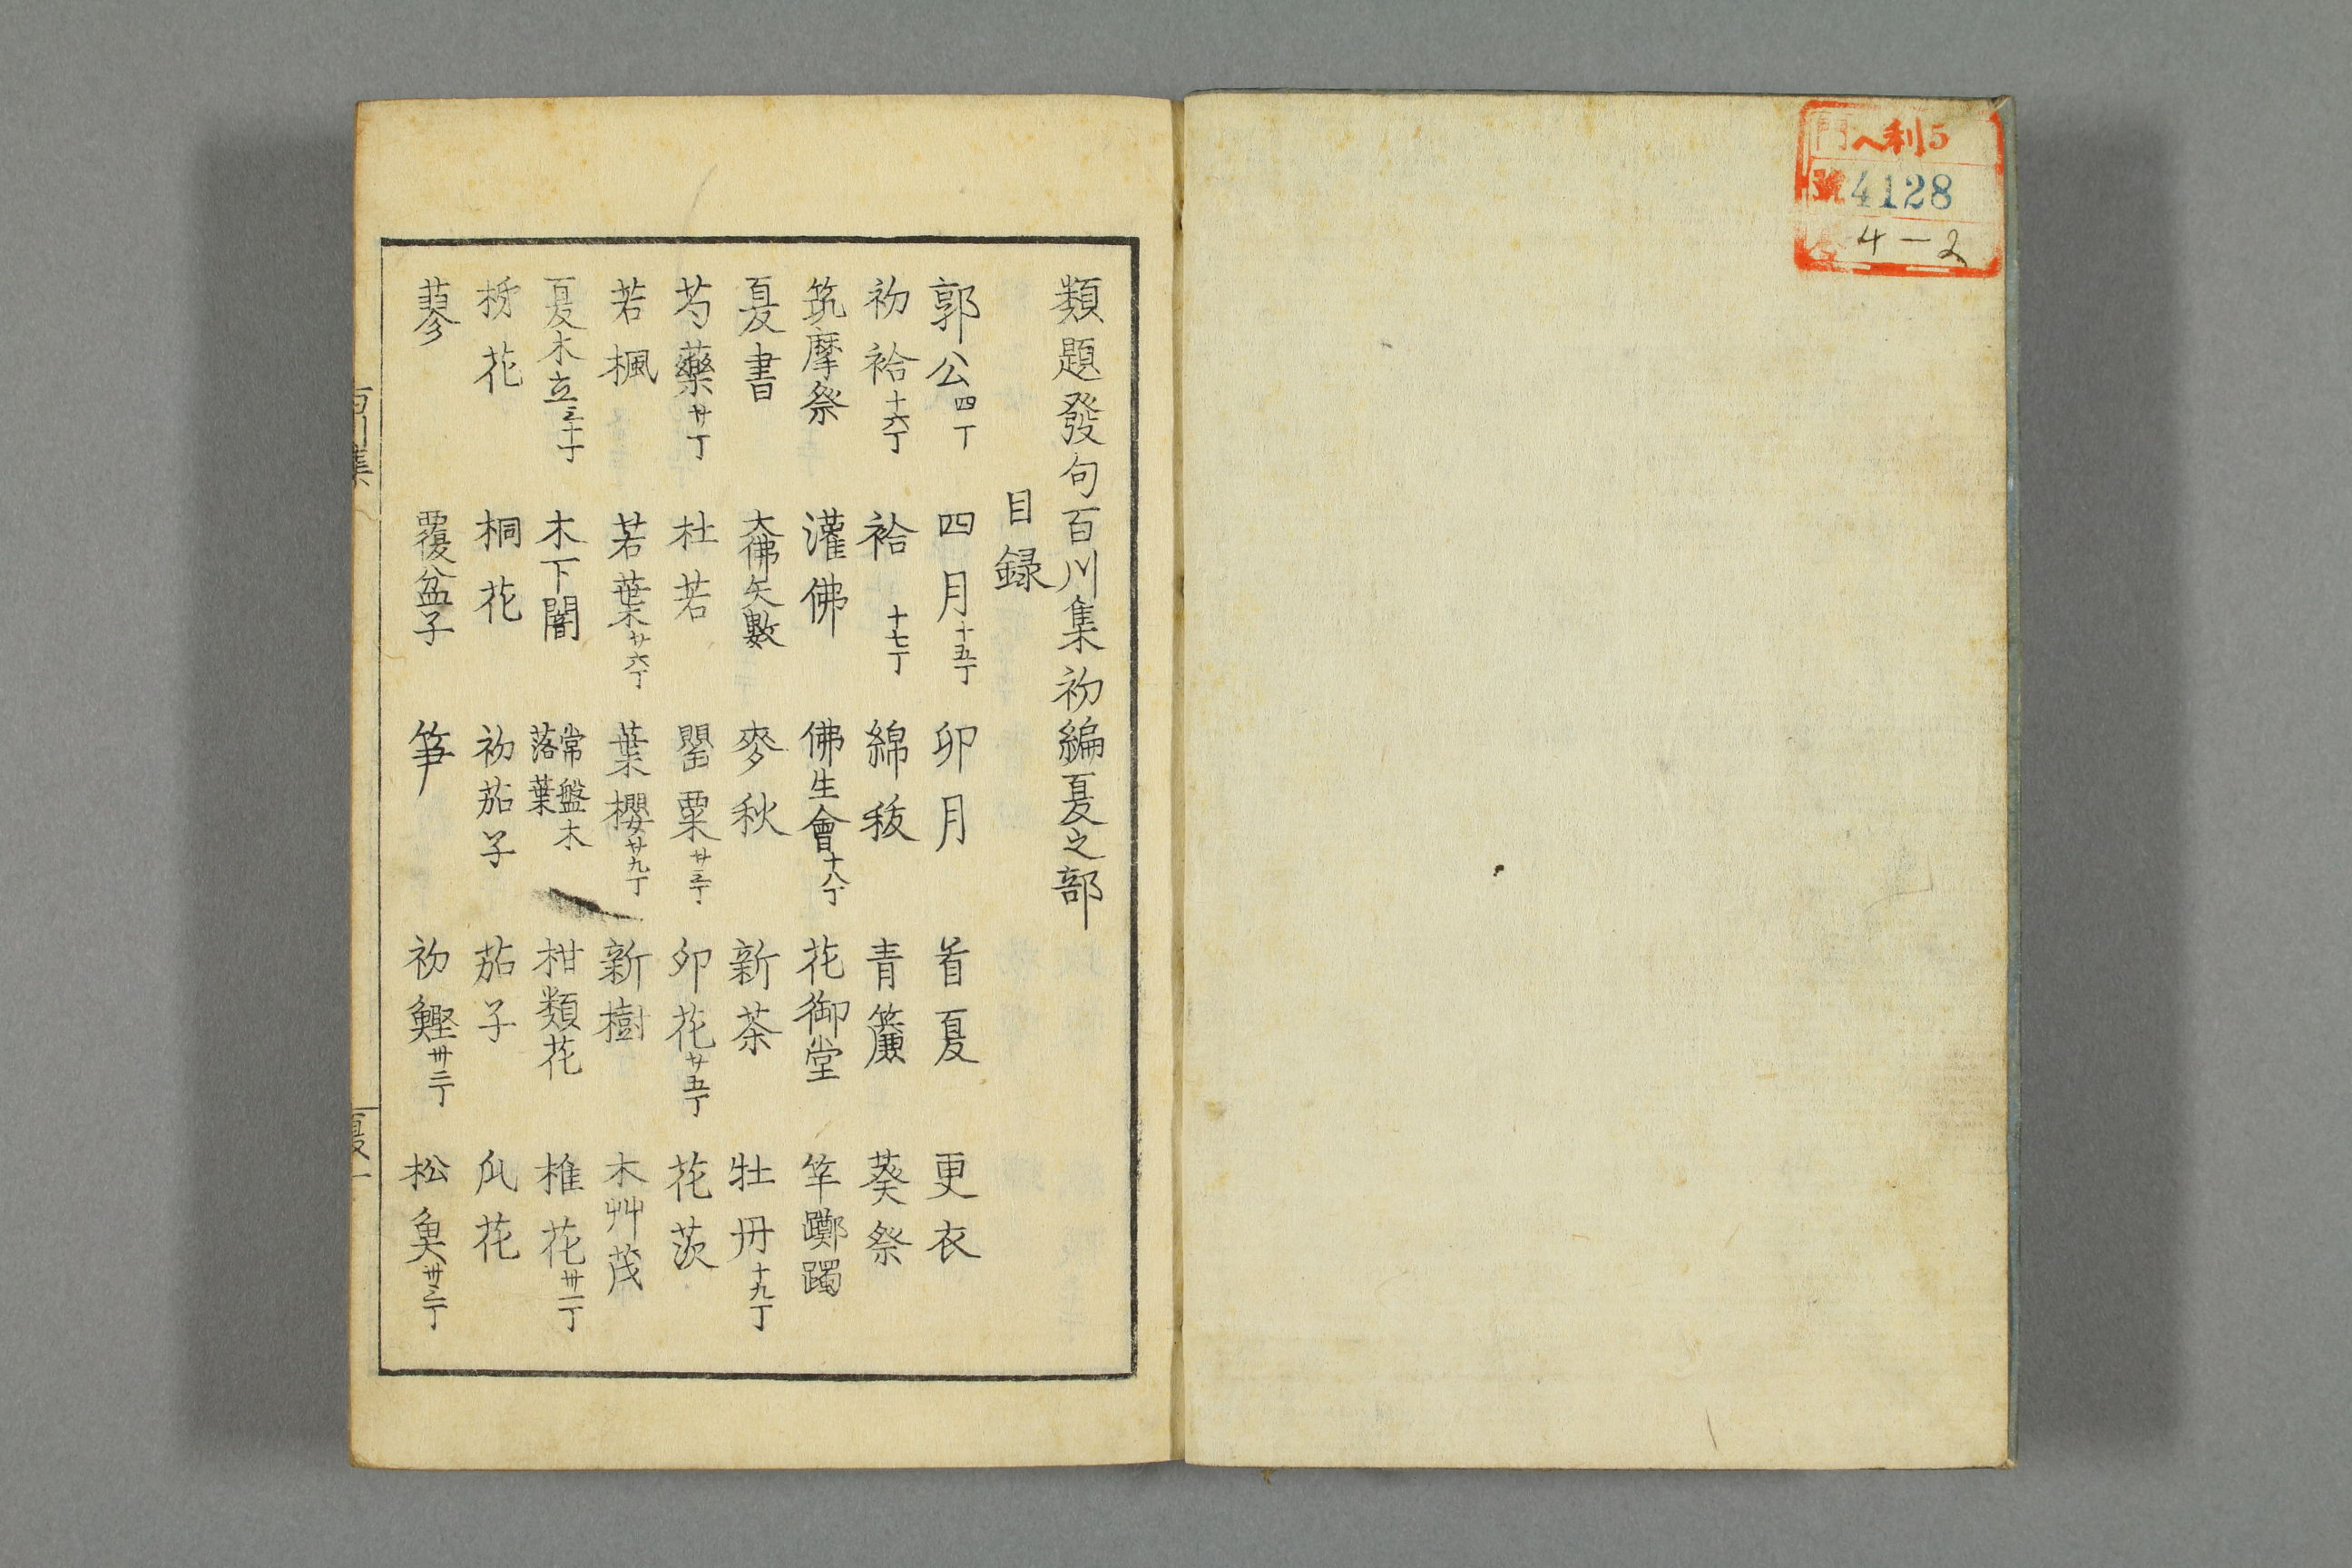 門 ヘ利5
號 4128
4-2
類題發句百川集初編夏之部
目録
郭公四丁 四月十五丁 卯月 首夏 更衣
初袷十六丁 袷十七丁 綿秡 青簾 葵祭
筑摩祭 灌佛 佛生會十八丁 花御堂 竿躑躅
夏書 大佛矢數 麥秋 新茶 牡丹十九丁
芍藥廿丁 杜若 罌粟廿三丁 卯花廿五丁 花茨
若楓 若葉廿六丁 葉櫻廿九丁 新樹 木艸茂
夏木立三十丁 木下闇 常盤木落葉 柑類花 椎花卅一丁
桐花 初茄子 茄子 瓜花
覆盆子 笋 初鰹卅二丁 松魚卅三丁
百川集
夏一